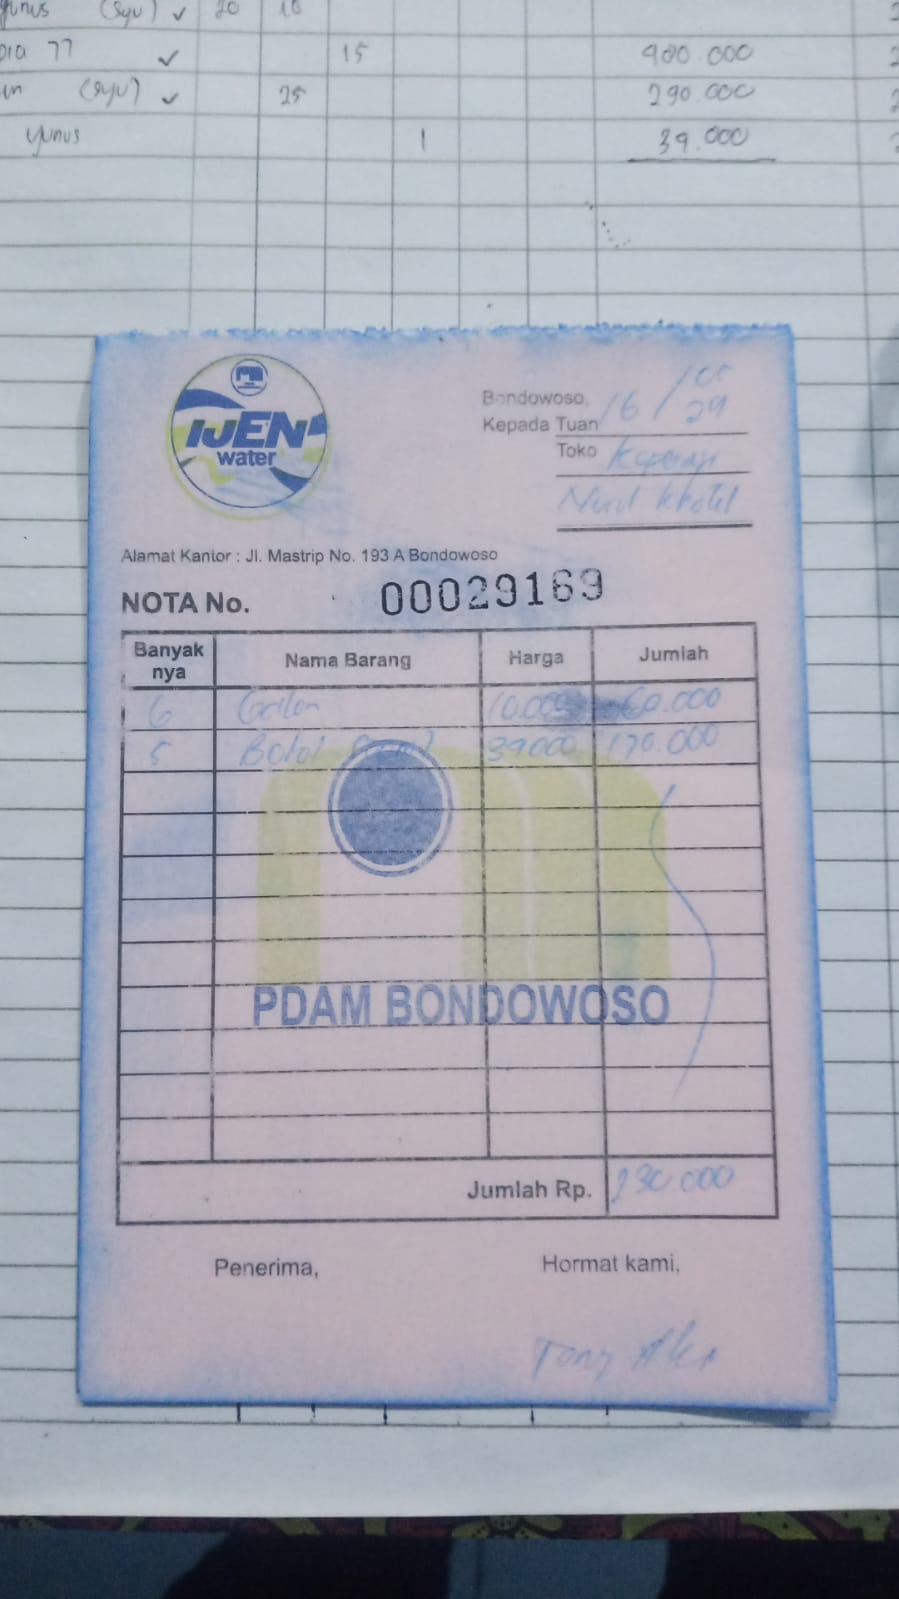 (syu) ✓ 20 10
77 ✓ 15 980.000
(syu) ✓ 25 290.000
yunus 1 39.000
IJEN
water
Bondowoso, 16/05
Kepada Tuan
Toko
Nurul Kholil
Alamat Kantor : Jl. Mastrip No. 193 A Bondowoso
NOTA No. 00029169
Banyak nya Nama Barang Harga Jumlah
6 Galon 10.000 60.000
5 Botol 170.000
PDAM BONDOWOSO
Jumlah Rp. 230.000
Penerima, Hormat kami,
Tony